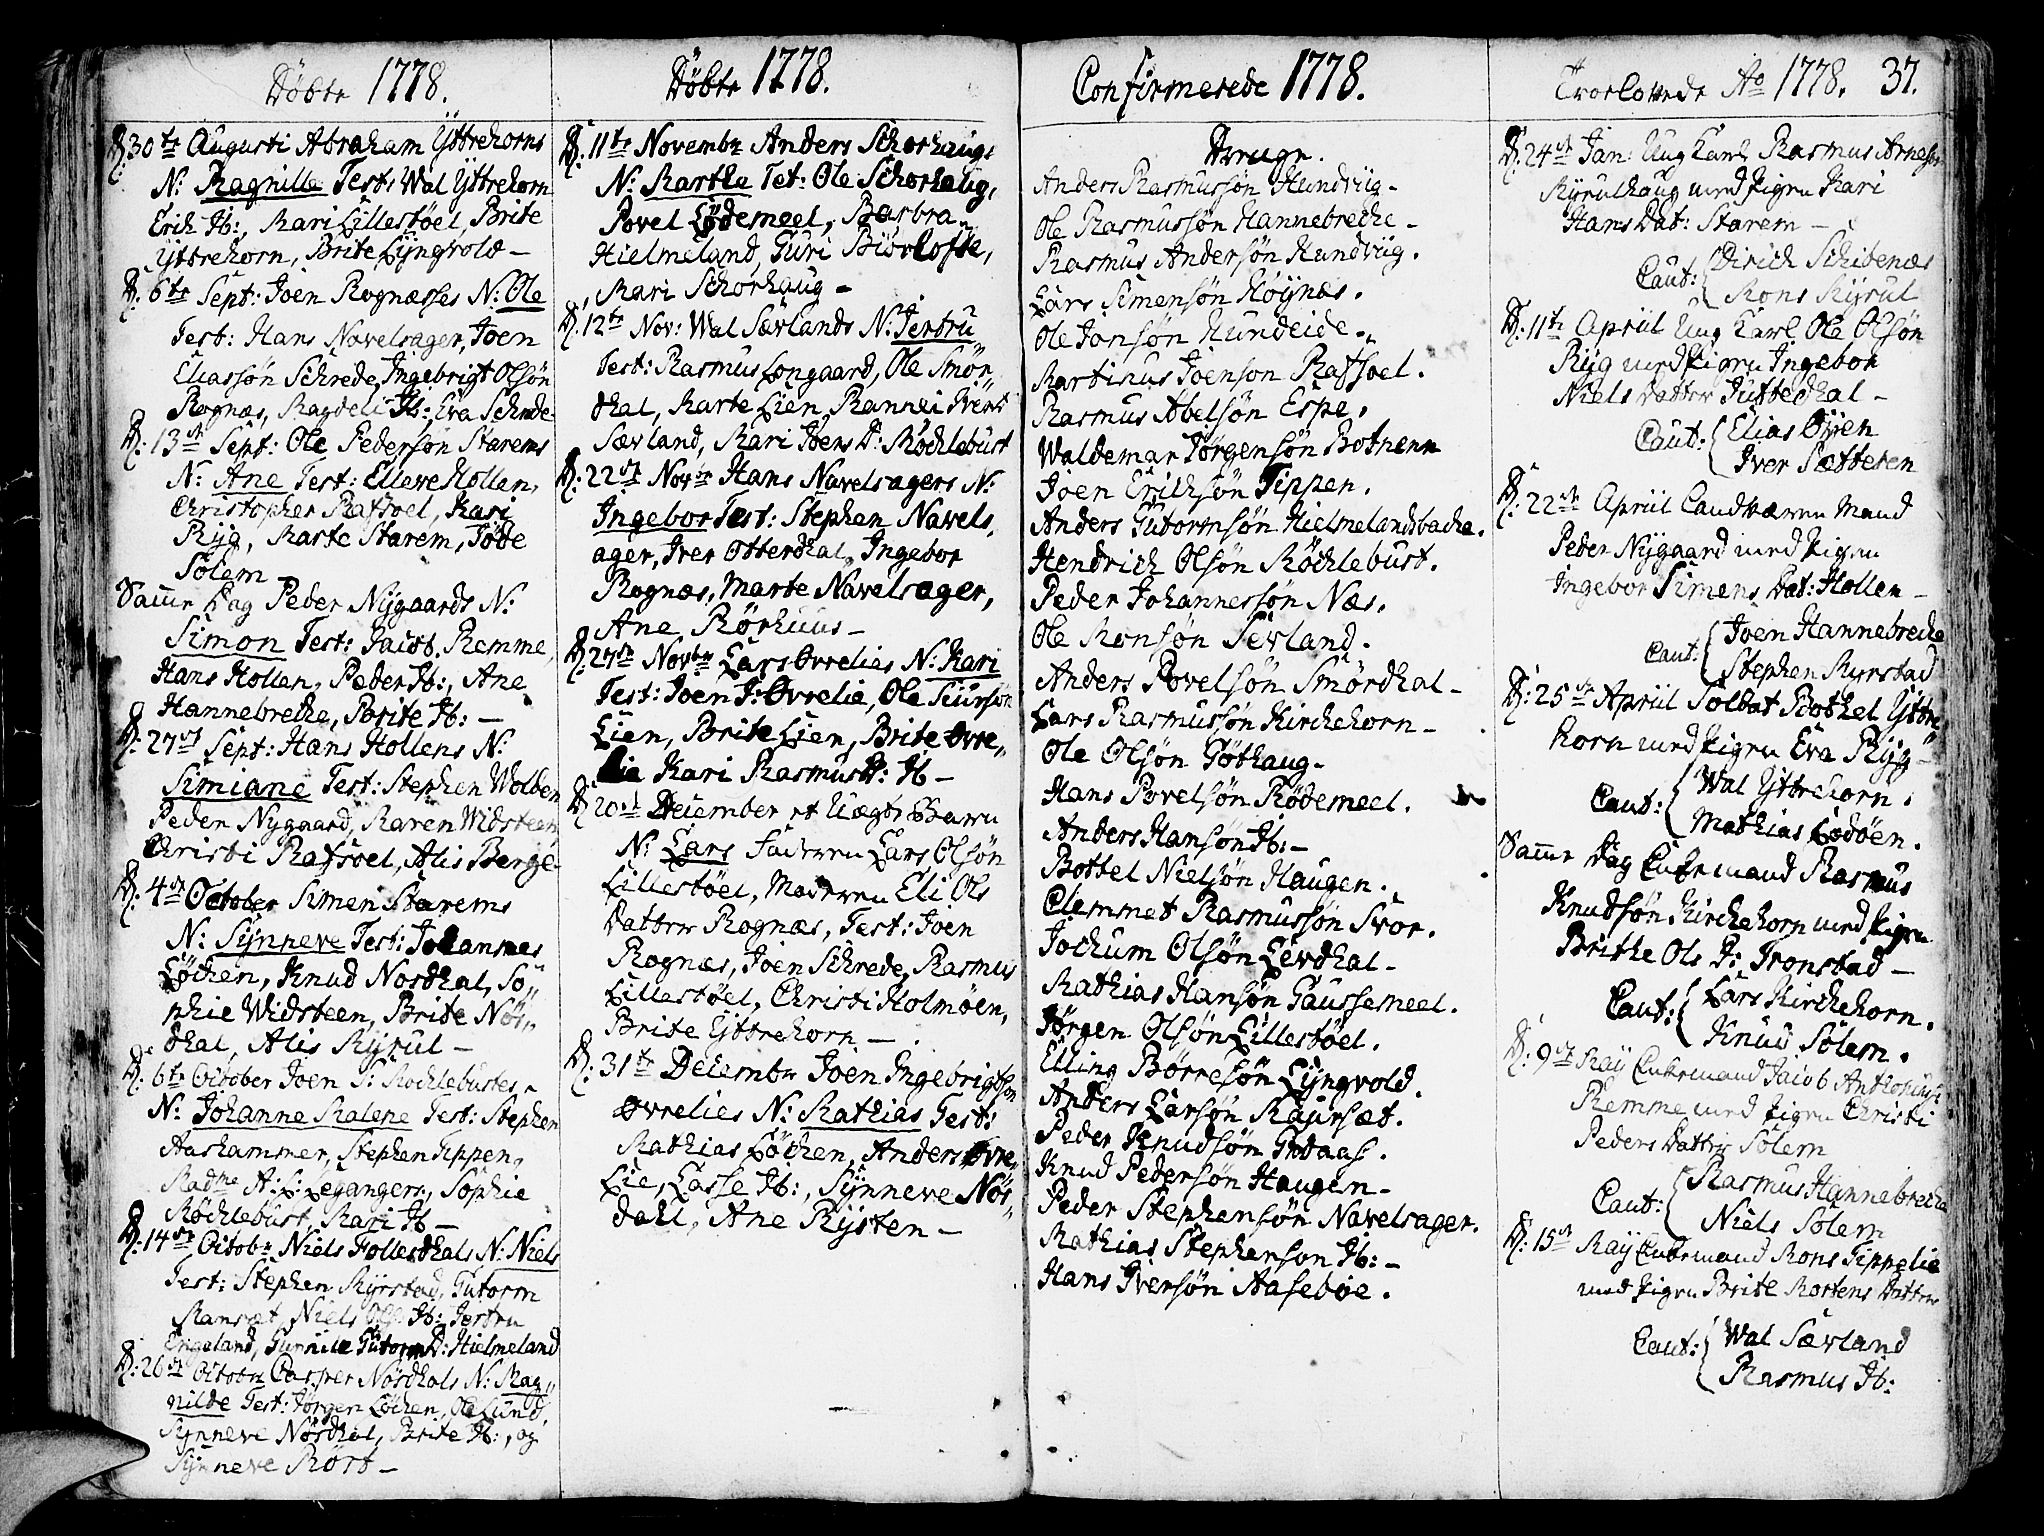 Döbte 1778.
D: 30te Augusti Abraham Ÿttrehorns
N: Magnille Test: Wal Ÿttrehorn
Erik Ib:, Mari Lillestöel, Brite
Ÿttrehorn, Brite Lÿngvold –
D: 6te Sept: Joen Rognæsses N: Ole
Test: Hans Navelsager, Joen
Eliassön Schrede, Ingebrigt Olsön
Rognæs, Magdeli Ib:, Eva Schrede
D: 13de Sept: Ole Pedersön Starems
N: Ane Test: Elleve Hollen,
Christopher Rafsoel, Kari
Rÿg, Marte Starem, Töde
Solem
Samme Dag Peder Nÿgaards N:
Simon Test: Jacob Remme,
Hans Hollen, Peder Ib:, Ane
Hannebrecke, Brite Ib: –
D: 27de Sept: Hans Hollens N:
Simiane Test: Stephen Wolden
Peder Nÿgaard, Maren Widsteen
Christi Rafsoel, Alis Berge
D: 4de October Simen Starems
N: Sÿnneve Test: Johannes
Löcken, Knud Nosdhal, So„
phie Widsteen, Brite Nos„
dhal, Alis Mÿrul –
D: 6te October Joen S: Mochlebustes
N: Johanne Malene Test: Stephen
Aashammer, Stephen Tippen,
Madme A: S: Legangers, Sophie
Möcklebust, Mari Ib –
D: 14de Octobr Niels Follesdhals N: Niels
Test: Stephen Mÿrstad, Gutorm
Mansæt, Niels Ols: Ib: Jertru
Engeland, Gunnile Gutorms D: Hielmeland
D: 26de Octobr Casper Nosdhals N: Mag„
nilde Test: Jörgen Löcken, Ole Lund,
Sÿnneve Nosdhal, Brite Ib:, og
Sÿnneve Mort –
Döbte 1778.
D: 11te Novembr Anders Schorhaugs
N: Martha Tet: Ole Schorhaug,
Povel Lödemeel, Barbra
Hielmeland, Guri Biörlofte,
Mari Schorhaug –
D: 12te Nov: Wal Sævlands N: Jertru
Test: Rasmus Longaard, Ole Smör
dhal, Marte Lien, Rannei Ivers
Sævland, Mari Joens D: Möcklebust
D: 22de Novbr Hans Navelsagers N:
Ingebor Test: Stephen Navels„
ager, Iver Otterdhal, Ingebor
Rognæs, Marte Navelsager,
Ane Rörhuus –
D: 27de Novbr Lars Ovrelies N: Kari
Test: Joen J: Ovrelie, Ole Siursön
Lien, Brite Lien, Brite Ovre„
lie Kari Rasmus D: Ib –
D: 20de December et Uægte Barn
N: Lars Faderen Lars Olsön
Lillestöel, Moderen Eli Ols
Datter Rognæs, Test: Joen
Rognæs, Joen Schrede, Rasmus
Lillestöel, Christi Holmöen,
Brite Ÿttrehorn –
D: 31te Decembr Joen Ingebrigtsön
Ovrelies N: Mathias Test:
Mathias Löcken, Anders Ovre„
Lie, Lasse Ib:, Sÿnneve Nos„
dahl, Ane Rÿsten –
Confirmerede 1778.
Drenge.
Anders Rasmussön Hundviig –
Ole Rasmussön Hannebrecke –
Rasmus Andersön Hundviig.
Lars Simensön Höÿnæs.
Ole Jonsön Hundeide.
Martinus Joenson Rafsoel.
Rasmus Abelsön Espe.
Waldemar Jörgensön Botnenn
Joen Ericksön Tippen.
Anders Gutormsön Hielmelandsbacka.
Hendrich Olsön Möcklebust.
Peder Johannessön Næs.
Ole Monsön Sevland.
Anders Povelsön Smördhal –
Lars Rasmussön Kirckehorn –
Ole Olsön Göthaug –
Hans Povelsön Rödemeel.
Anders Hansön Ib: –
Bottel Nielsön Haugen.
Clemmet Rasmussön Svor.
Jochum Olsön Levdhal –
Mathias Hansön Gaussemeel.
Jörgen Olsön Lillestöel.
Elling Börresön Lÿngvold.
Anders Larsön Maursæt.
Peder Knudsön Indaas.
Knud Pedersön Haugen –
Peder Stephensön Navelsager.
Mathias Stephenson Ib: –
Hans Iversön Aaseböe.
Trorlovede Ao 1778. 37.
D: 24de Jan: Ung Karl Rasmus Arnesön
Mÿrulhaug med Pigen Kari
Hans Dat: Starem –
Caut: Dirich Schibenæs
Mons Mÿrul
D: 11te Apriil Ung Karl Ole Olsön
Rÿg med Pigen Ingebor
Niels Datter Justedhal –
Caut: Elias Öÿen
Iver Sætteren
D: 22de Apriil Landværn Mand
Peder Nÿgaard med Pigen
Ingebor Simens Dat: Hollen –
Caut: Joen Hannebrecke
Stephen Mÿrstad
D: 25de Apriil Soldat Bothel Ÿttre„
horn med Pigen Eva Rÿg –
Caut: Wal Ÿttrehorn.
Mathias Lodöen.
Samme Dag Enkemand Rasmus
Knudsön Kirckehorn med Pigen
Brithe Ols D: Tronstad –
Caut: Lars Kirckehorn.
Knud Solem.
D: 9de Maÿ Enkemand Jacob Anthonius:
Remme med Pigen Christi
Peders Datter Solem
Caut: Rasmus Hannebrecke
Niels Solem
D: 15de Maÿ Enkemand Mons Tippelie
med Pigen Brite Mortens Datter
Caut: Wal Sævland
Rasmus Ib: